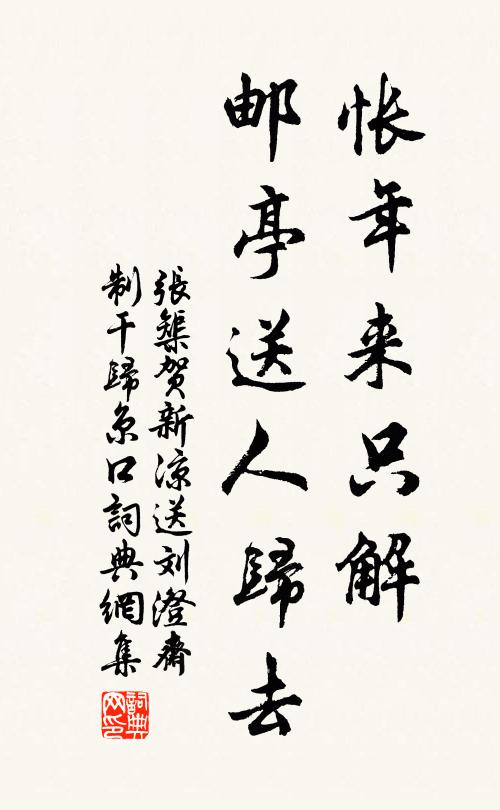 怅年来只解
邮亭送人歸去
張榘贺新凉送刘澄齋
制干歸京口詞典網集
詞典
网印